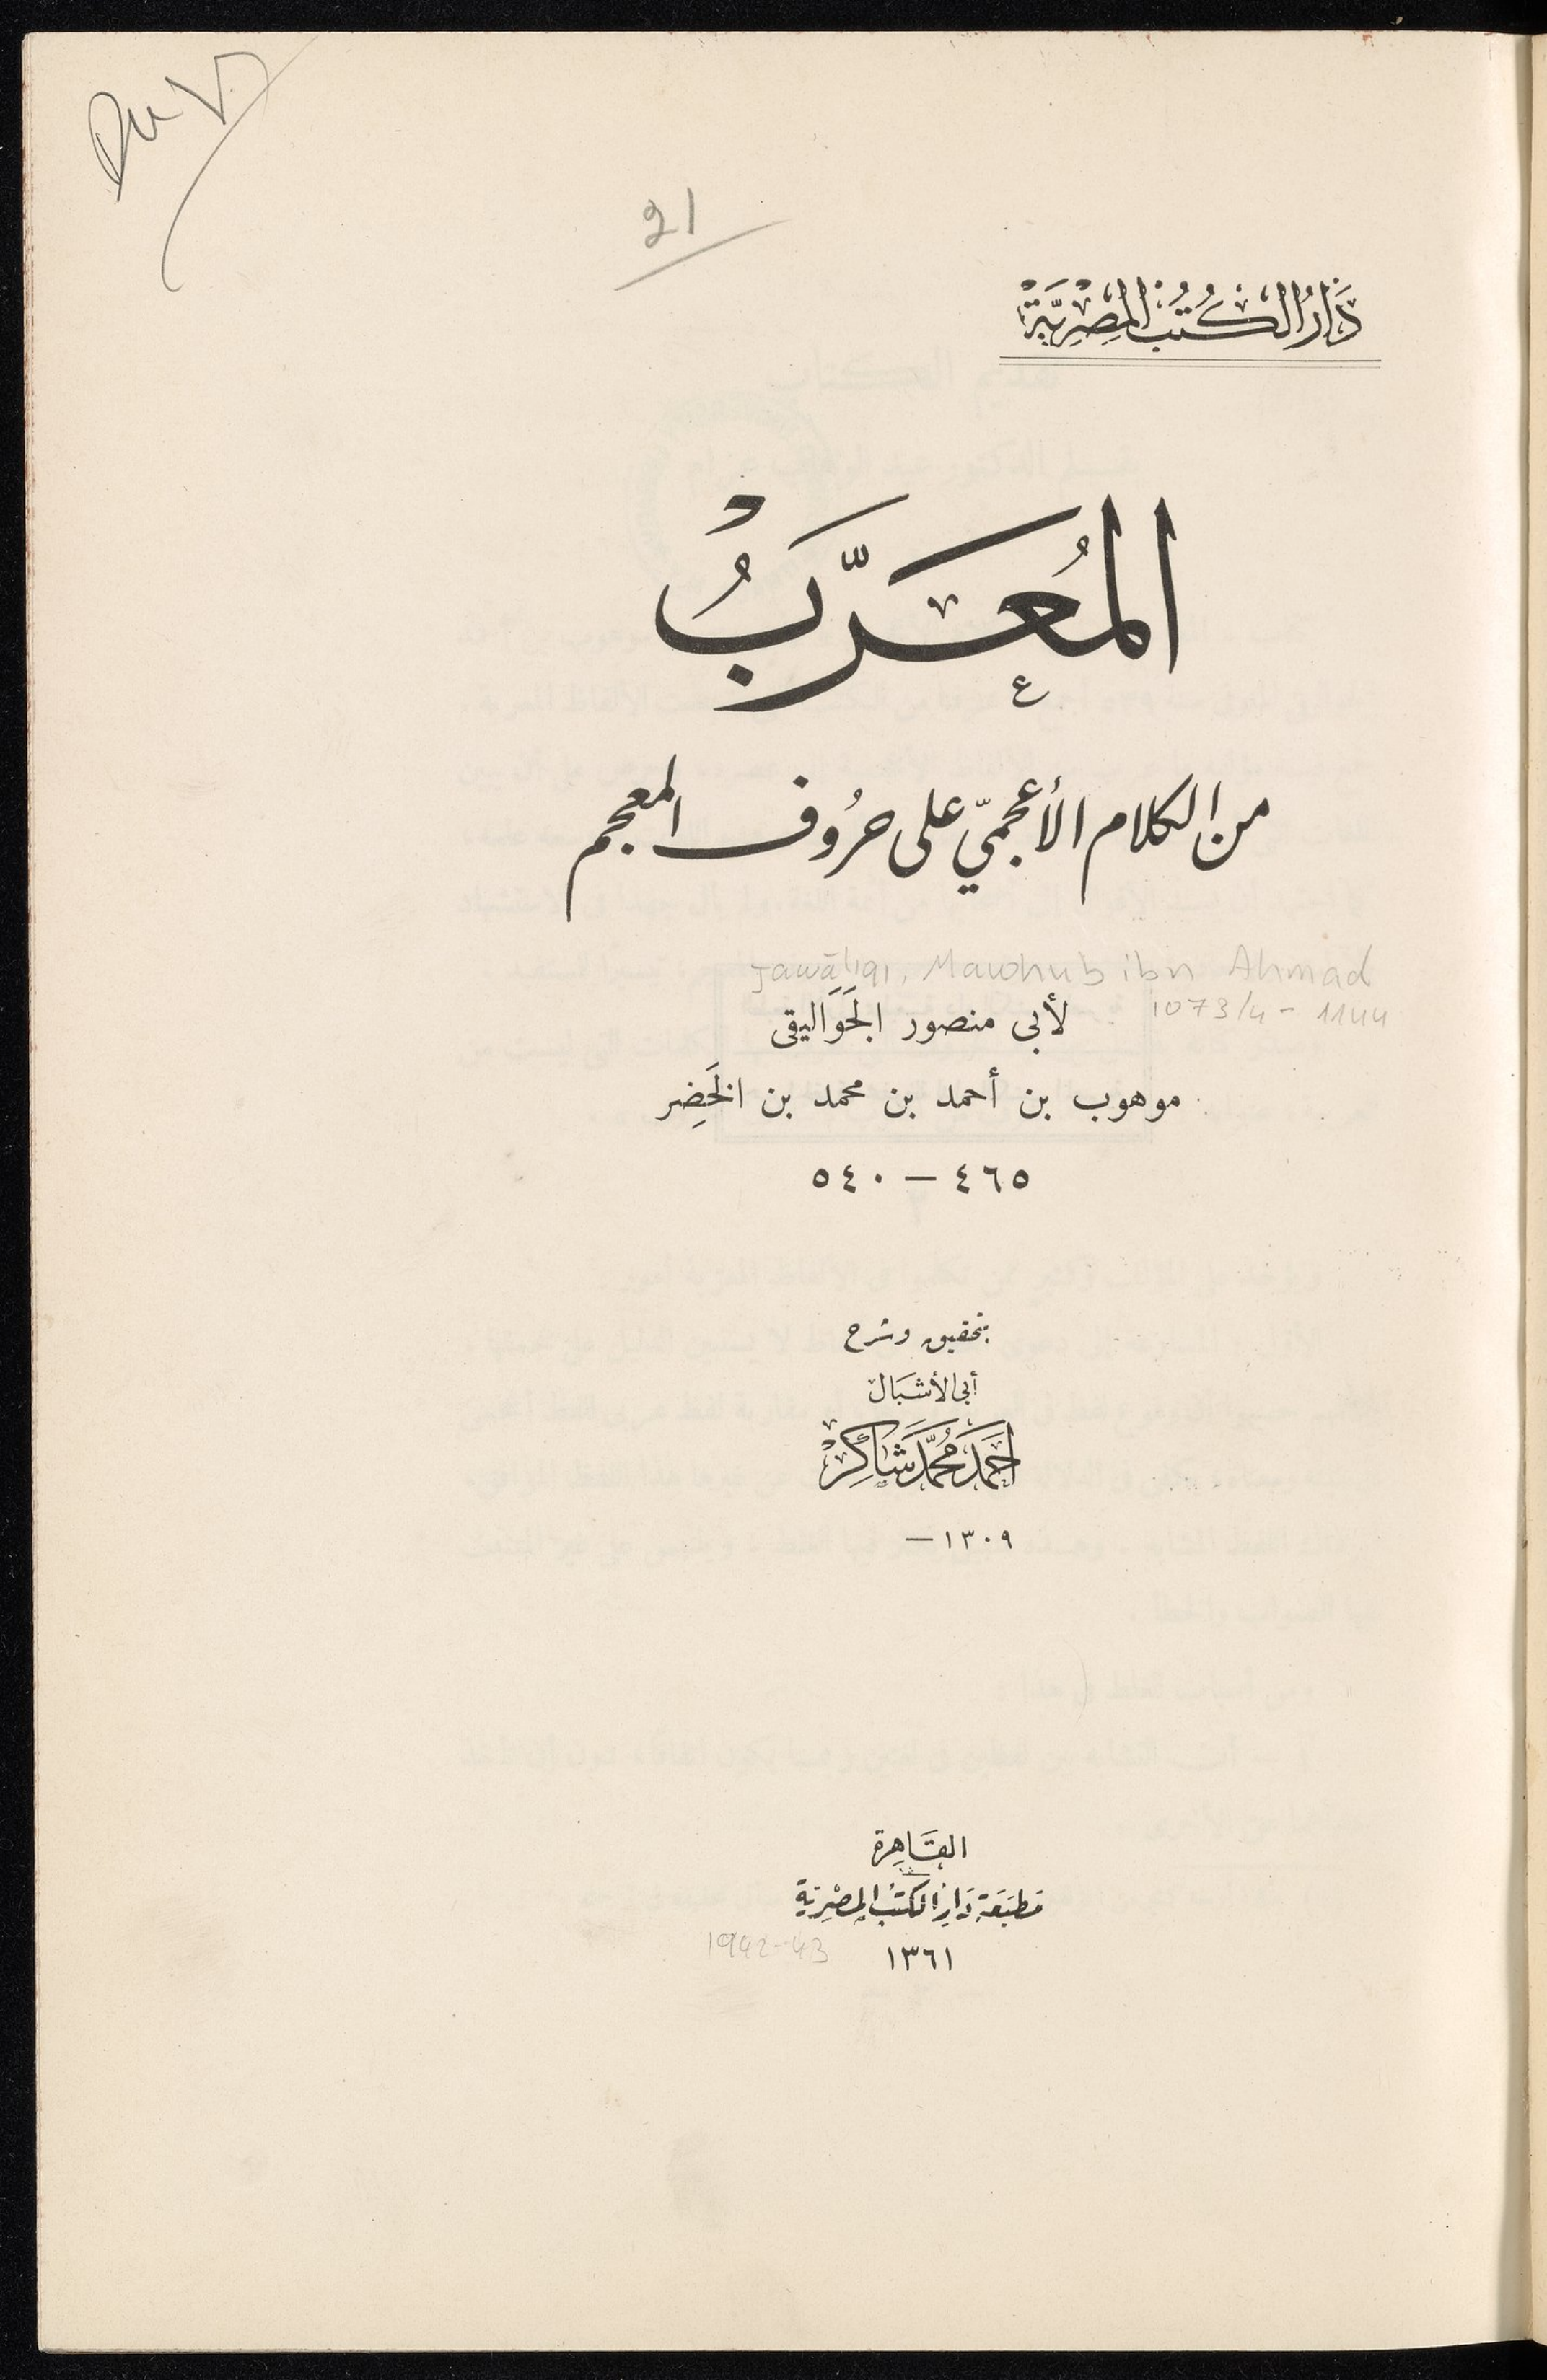 21
دَارُ الكُتُبِ المِصْرِيَّةْ
المُعَرَّبُ
من الكلام الأعجميّ على حرُوف المعجم
Jawālīqī, Mawhub ibn Ahmad
1073/4 - 1144
لأبى منصور الجَوَاليقى
موهوب بن أحمد بن محمد بن الخَضِر
٤٦٥ — ٥٤٠
بتحقيق وشرح
أبى الأشبَال
أحمَد محُمَّد شَاكِرْ
١٣٠٩ —
القَاهِرة
مَطبَعَة دَارِ الكتُبِ المِصْرِيَّة
١٣٦١
1942-43